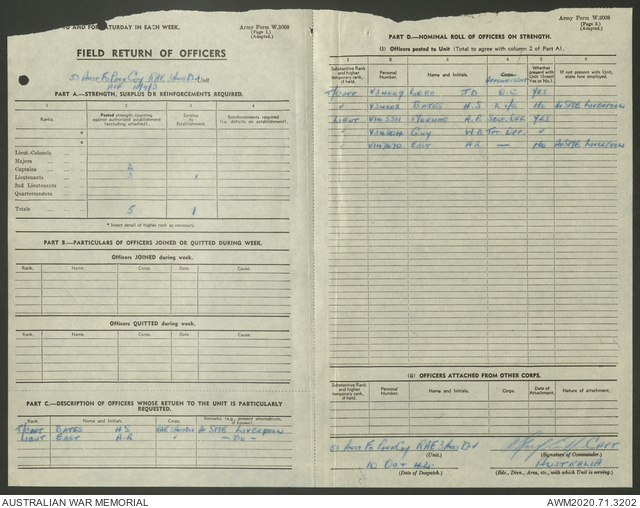 TO AND FOR SATURDAY IN EACH WEEK.
Army Form W.3008
(Page 1.)
(Adapted.)
FIELD RETURN OF OFFICERS
Unit
AIF
PART A.—STRENGTH, SURPLUS OR REINFORCEMENTS REQUIRED.
1 2 3 4
Ranks. Posted strength counting against authorized establishment (excluding attached). Surplus to Establishment. Reinforcements required (i.e. deficits on establishment).
*
*
Lieut-Colonels
Majors
Captains 2
Lieutenants 3 1
2nd Lieutenants
Quartermasters
Totals 5 1
* Insert detail of higher rank as necessary.
PART B.—PARTICULARS OF OFFICERS JOINED OR QUITTED DURING WEEK.
Officers JOINED during week.
Rank. Name. Corps. Date. Cause.
Officers QUITTED during week.
Rank. Name. Corps. Date. Cause
PART C.—DESCRIPTION OF OFFICERS WHOSE RETURN TO THE UNIT IS PARTICULARLY REQUESTED.
Rank. Name and Initials. Corps. Remarks (e.g., present whereabouts, if known)
T/CAPT BATES H.S SME LIVERPOOL
LIEUT EAST A.R " — DO —
Army Form W.3008
(Page 2.)
(Adapted.)
PART D.—NOMINAL ROLL OF OFFICERS ON STRENGTH.
(i) Officers posted to Unit (Total to agree with column 2 of Part A).
1 2 3 4 5 6
Substantive Rank and higher temporary rank, if held. Personal Number. Name and Initials. Corps. Whether present with Unit (Insert Yes or No.). If not present with Unit, state how employed.
T/CAPT J.D. O.C YES
" BATES H.S 2 i/c NO SME LIVERPOOL
LIEUT YES
" GUY W.B "
" EAST A.R — NO SME LIVERPOOL
(ii) OFFICERS ATTACHED FROM OTHER CORPS.
Substantive Rank and higher temporary rank, if held. Personal Number. Name and Initials. Corps. Date of Attachment. Nature of attachment.
RAE
CAPT
(Unit.) (Signature of Commander.)
10 OCT AUSTRALIA
(Date of Despatch.) (Bde., Divn., Area, etc., with which Unit is serving.)
AUSTRALIAN WAR MEMORIAL AWM2020.71.3202